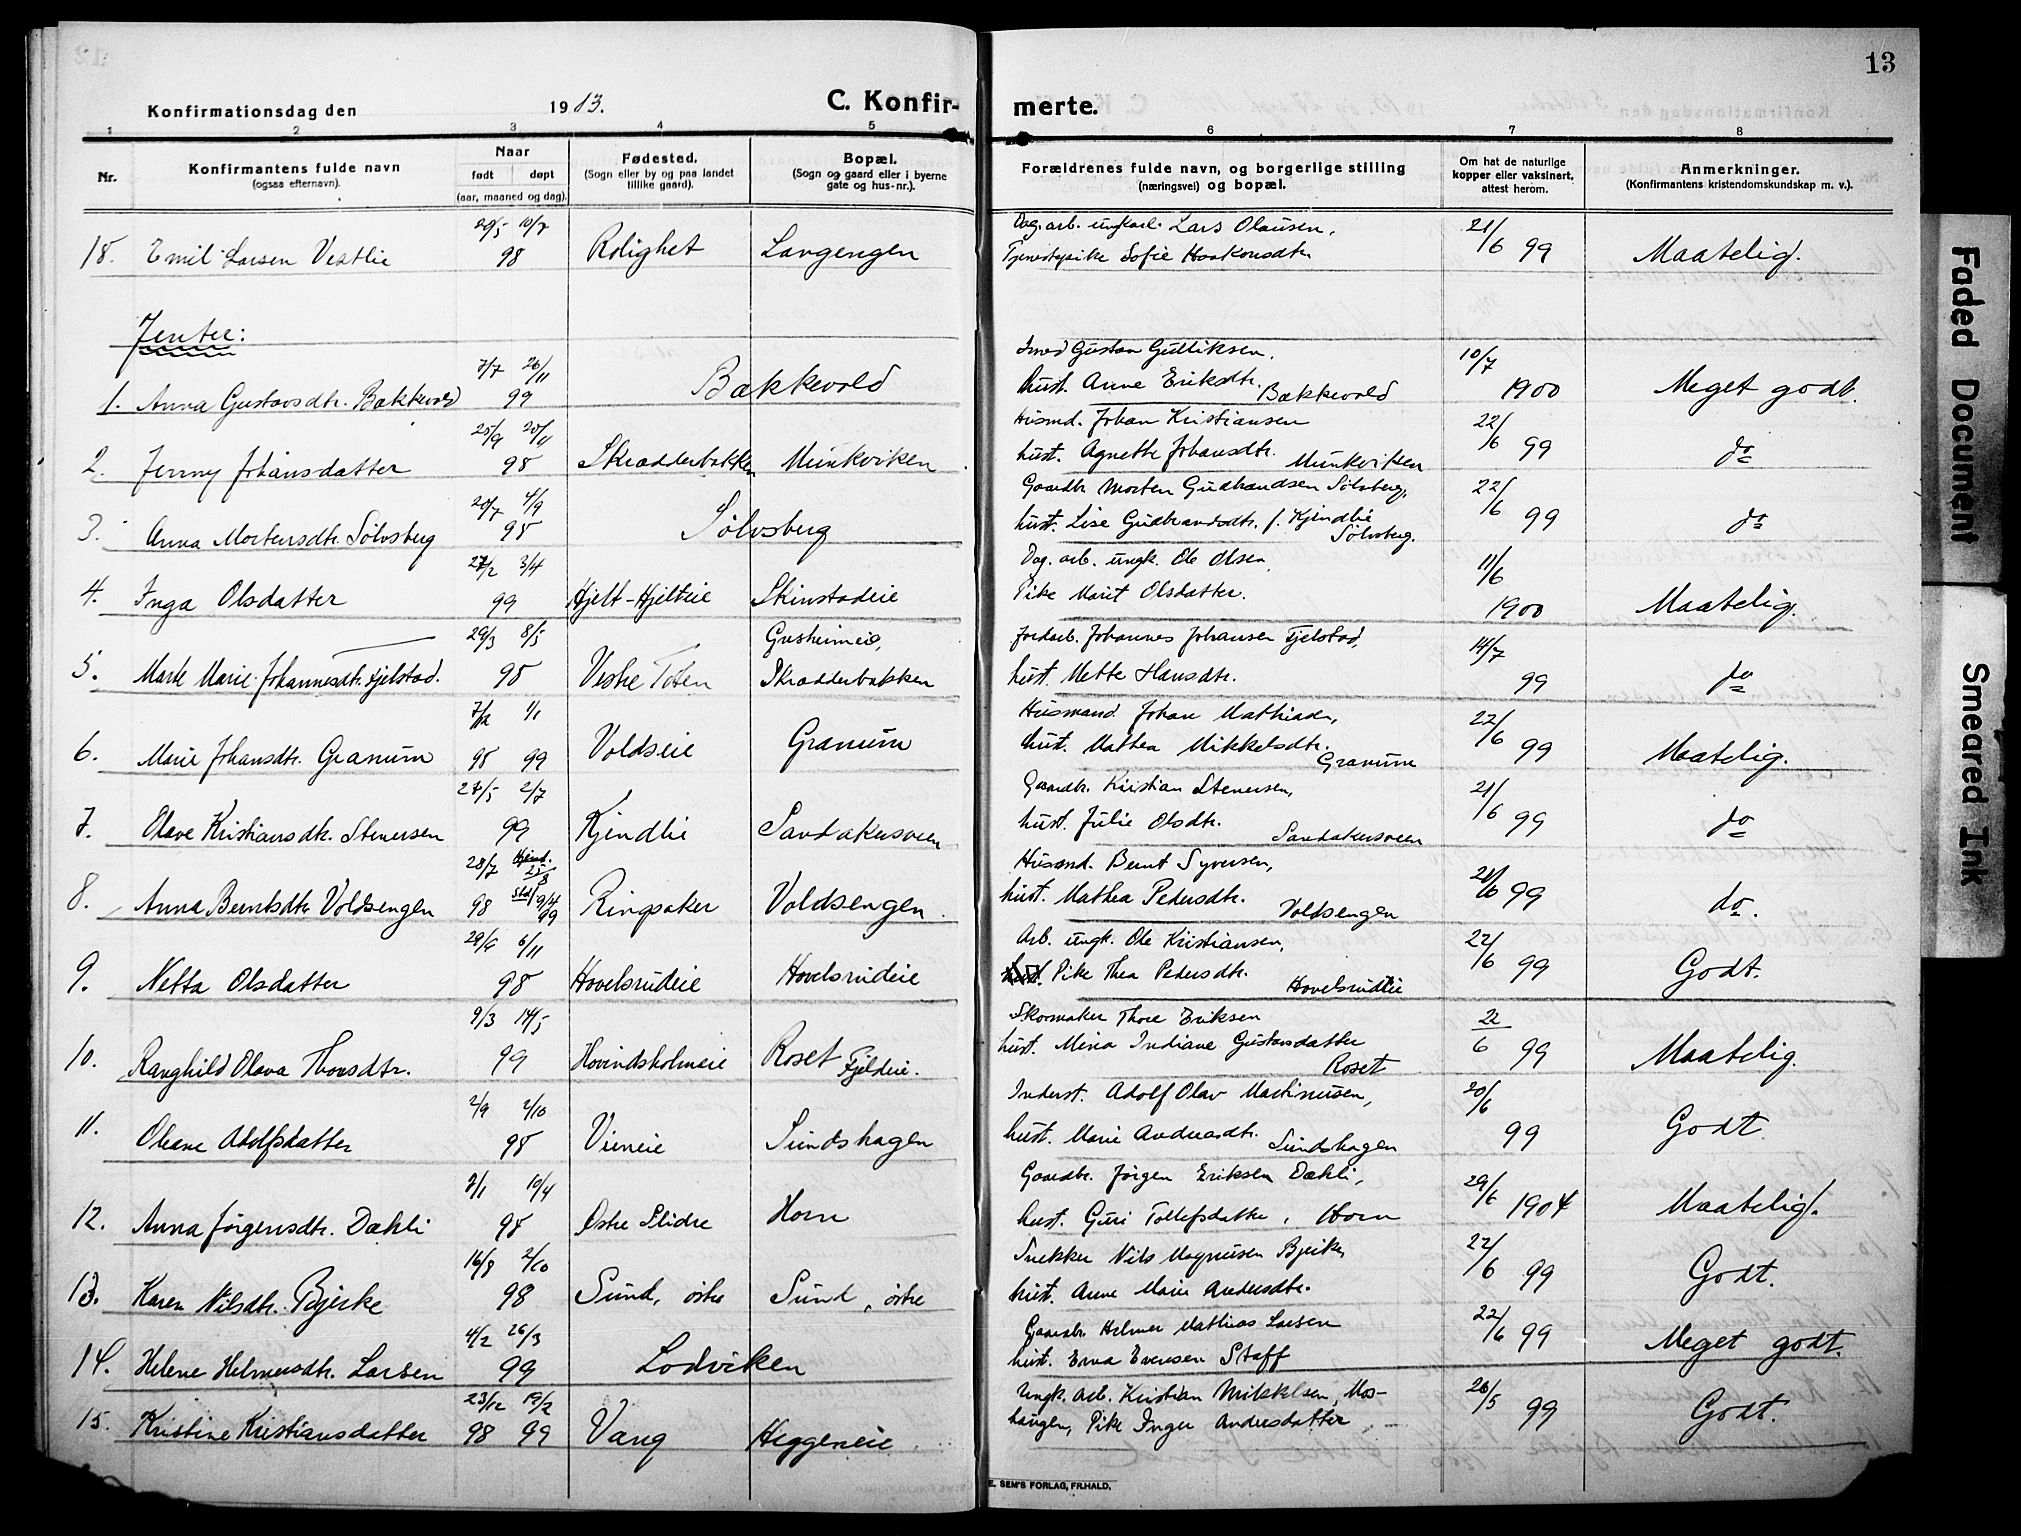 13
Konfirmationsdag den 1913.
C. Konfir-
merte.
1 2 3 4 5 6 7 8
Nr.
Konfirmantens fulde navn
(ogsaa efternavn).
Naar
født døpt
(aar, maaned og dag).
Fødested.
(Sogn eller by og paa landet
tillike gaard).
Bopæl.
(Sogn og gaard eller i byerne
gate og hus-nr.).
Forældrenes fulde navn, og borgerlige stilling
(næringsvei) og bopæl.
Om hat de naturlige
kopper eller vaksinert,
attest herom.
Anmerkninger.
(Konfirmantens kristendomskundskap m. v.).
29/5 10/7 Dag. arb. ungkarl. Lars Olausen, 21/6 99
18. Emil Larsen Vestlie 98 Rolighet Langengen Tjenestepike Sofie Haakonsdtr. Maatelig.
Jenter:
7/7 26/11 Gustav Gulliksen, 10/7
1. Anna Gustavsdtr. Bækkevold 99 Bækkevold hust. Anne Eriksdtr. Bækkevold 1900 Meget godt.
25/9 20/11 Husmd. Johan Kristiansen 22/6 99
2. Jenny Johansdatter 98 Skrædderbakken Munkviken hust. Agnethe Johansdtr. Munkviken do
20/7 4/9 Gaardbr. Morten Gudbrandsen Sølvsberg, 22/6 99
3. Anna Mortensdtr. Sølvsberg 98 Sølvsberg hust. Lise Gudbrandsdtr. f. Kjendlie do
Sølvsberg.
27/2 3/4 Dag. arb. ungk. Ole Olsen, 11/6
4. Inga Olsdatter 99 Hjelt-Hjelteie Skinstadeie Pike Marit Olsdatter. 1900 Maatelig.
29/3 8/5 Grusheimeie, Jordarb. Johannes Johansen Fjelstad, 14/7
5. Marte Marie Johannesdtr. Fjelstad. 98 Vestre Toten Skrædderbakken hust. Mette Hansdtr. 99 do
7/12 1/1 Husmand Johan Mathiasen, 22/6 99
6. Marie Johansdtr. Granum 98 99 Voldseie Granum hust. Mathea Mikkelsdtr. Granum Maatelig.
27/5 2/7 Gaardbr. Kristian Stenersen, 21/6 99
7. Olave Kristiansdtr. Stenersen 99 Kjendlie Sandakersveen hust. Julie Olsdtr. Sandakersveen do
28/7 Hjemd. 25/8 Husmd. Bernt Syversen, 21/6 99
8. Anna Berntsdtr. Voldsengen 98 Std. 9/4 99 Ringsaker Voldsengen. hust. Mathea Pedersdtr. Voldsengen do.
29/6 6/11 Arb. ungk. Ole Kristiansen, 22/6 99
9. Netta Olsdatter 98 Hovelsrudeie Hovelsrudeie Pike Thea Pedersdtr. Hovelsrudeie Godt.
9/3 14/5 Skomaker Thore Eriksen 22/6 99
10. Ranghild Olava Thoresdtr. 99 Hovindsholmeie Roset Fjeldeie. hust. Mina Indiane Gustavsdatter Roset Maatelig.
2/9 2/10 Inderst. Adolf Olav Martinusen, 20/6
11. Oleane Adolfsdatter 98 Vineie Sundshagen hust. Marie Andreasdtr. Sundshagen 99 Godt.
7/1 10/4 Gaardbr. Jørgen Eriksen Dæhli, 29/6 1904
12. Anna Jørgensdtr. Dæhli 98 Østre Slidre Horn hust. Guri Tollefsdatter, Horn Maatelig.
16/8 2/10 Snekker Nils Magnusen Bjerke, 22/6 99
13. Karen Nilsdtr. Bjerke 98 Sund, østre Sund, østre hust. Anne Marie Andersdtr. Godt.
4/2 26/3 Gaardbr. Helmer Mathias Larsen 22/6 99
14. Helene Helmersdtr. Larsen 99 Lodviken hust. Erna Evensen Staff Meget godt.
23/12 19/2 Ungk. arb. Kristian Mikkelsen, Mos- 26/5 99
15. Kristine Kristiansdatter 98 99 Vang Heggeneie haugen, Pike Inger Andersdatter Godt.
E. SEM'S FORLAG, FR.HALD.
Faded Document
Smeared Ink